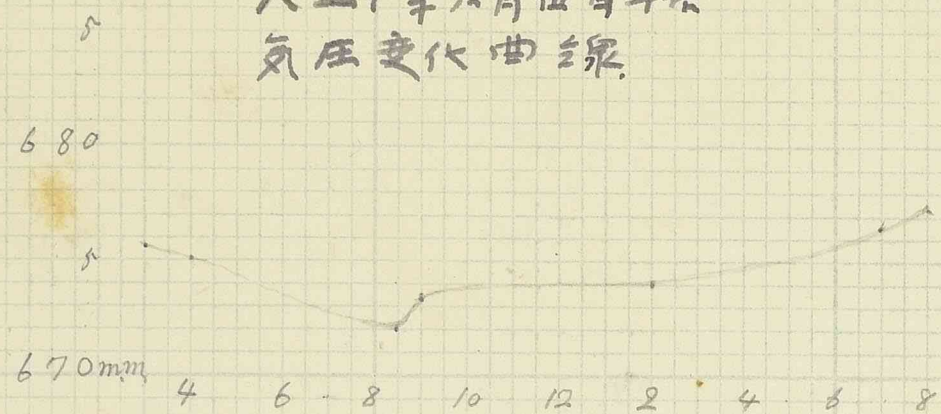 5
気圧変化曲線.
680
5
670mm
4 6 8 10 12 2 4 6 8